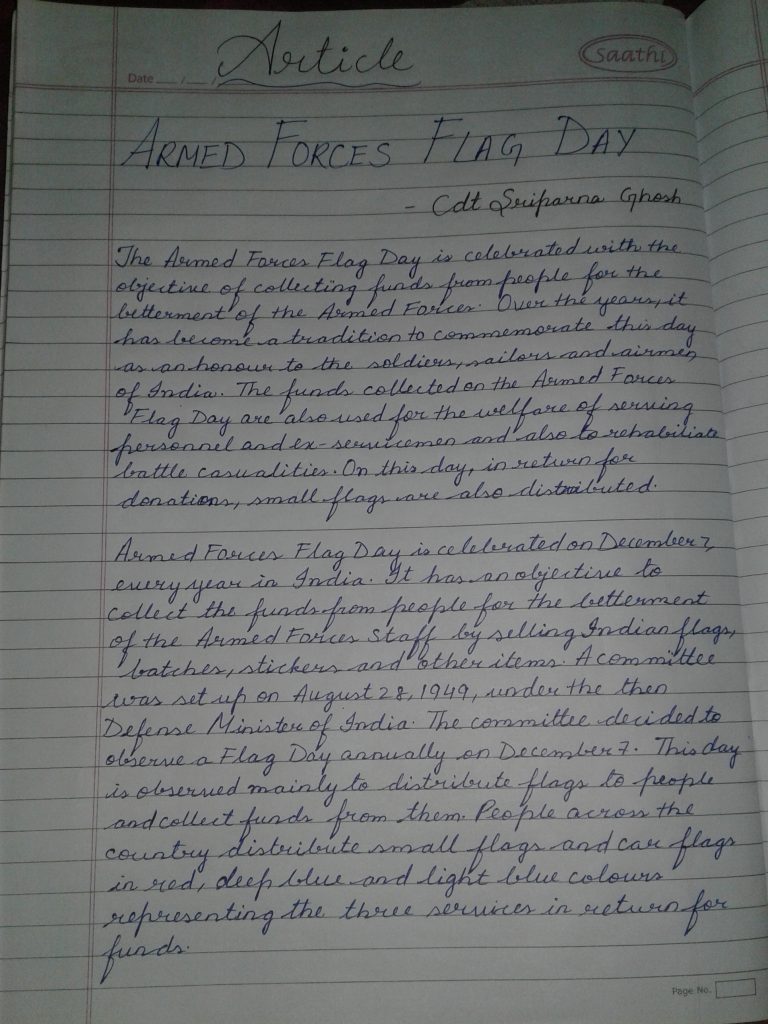 Article
Date __/__/
Saathi
ARMED FORCES FLAG DAY
- Cdt Sriparna Ghosh
The Armed Forces Flag Day is celebrated with the
objective of collecting funds from people for the
betterment of the Armed Forces. Over the years, it
has become a tradition to commemorate this day
as an honour to the soldiers, sailors and airmen
of India. The funds collected on the Armed Forces
Flag Day are also used for the welfare of serving
personnel and ex-servicemen and also to rehabiliate
battle casualities. On this day, in return for
donations, small flags are also distributed.
Armed Forces Flag Day is celebrated on December 7,
every year in India. It has an objective to
collect the funds from people for the betterment
of the Armed Forces Staff by selling Indian flags,
batches, stickers and other items. A committee
was set up on August 28, 1949, under the then
Defense Minister of India. The committee decided to
observe a Flag Day annually on December 7. This day
is observed mainly to distribute flags to people
and collect funds from them. People across the
country distribute small flags and car flags
in red, deep blue and light blue colours
representing the three services in return for
funds.
Page No.